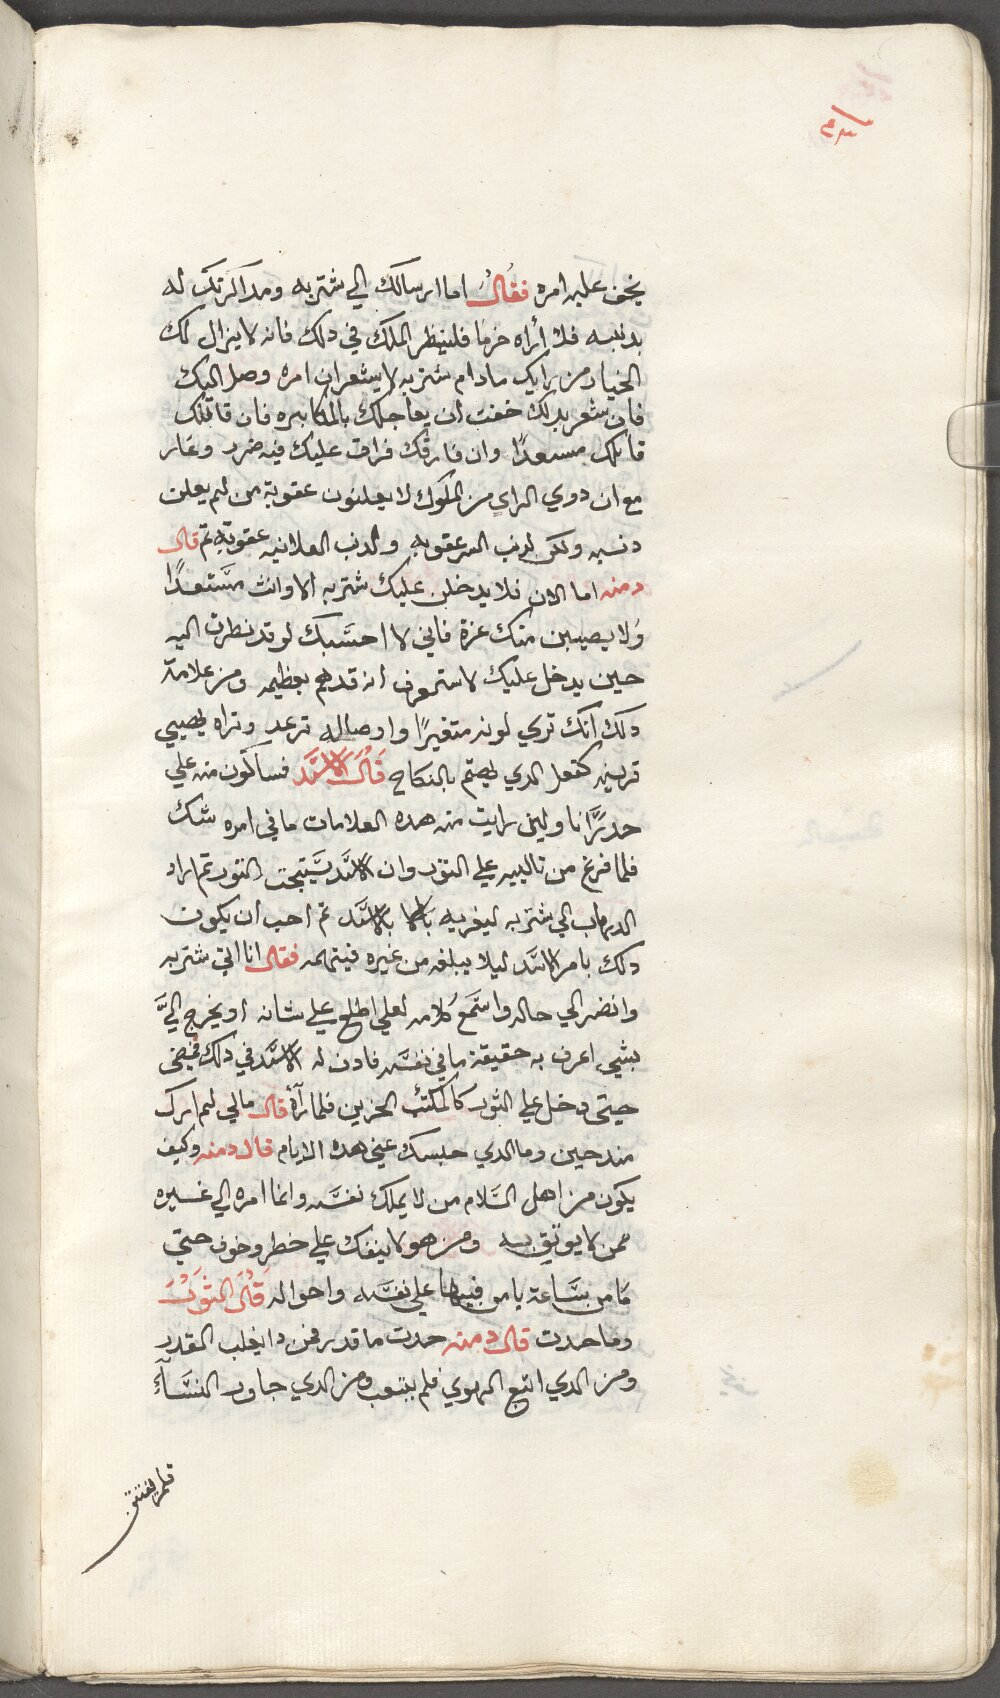 يخف عليه امره فقال اما ارسالك الي شتربه ومداكرتك له
بدنبه فلا أراه حزما فلينظر الملك في دلك فانه لا يزال لك
الخيار من رايك مادام شتربه لا يشعر ان امره وصل اليك
فان شعر بدلك خفت ان يعاجلك بالمكابره فان قاتلك
قاتلك مستعدًا وان فارقك فراق عليك فيه ضرر وعار
مع ان دوي الراي من الملوك لا يعلنون عقوبة من لم يعلن
دنبه ولكن لدنب السر عقوبه والدنب العلانيه عقوبته تم قال
دمنه اما الان فلا يدخلن عليك شتربه الا وانت مستعدًا
ولا يصيبن منك غرة فاني لا احسبك لو قد نظرت اليه
حين يدخل عليك لا ستعرف انه قد هم بعظيمه ومن علامة
دلك انك تري لونه متغيرًا واوصاله ترعد وتراه يصبي
قرينه كفعل الدي يهتم بالنكاح قال الاسد فساكون منه علي
حدرًا نا ولين رايت منه هده العلامات ما في امره شك
فلما فرغ من تاليبه علي التور وان الاسد يستبحت التور تم اراد
الدهاب الي شتربه ليغريه بالاسد تم احب ان يكون
دلك بامر الاسد ليلا يبلغه من غيره فيتهمه فقال انا اتي شتربه
وانضر الي حاله واستمع كلامه لعلي اطلع علي شانه او يخرج اليَّ
بشي اعرف به حقيقة ما في نفسه فادن له الاسد في دلك فمضي
حيتي دخل علي التور كالمكتئب الحزين فلما رآه قال مالي لم ارك
مند حين وما الدي حبسك عني هده الايام قال دمنه وكيف
يكون من اهل السلام من لا يملك نفسه وانما امره الي غيره
ممن لا يوتق به ومن هو لا ينفك علي خطر وخوف حتي
ما من ساعة يامن فيها علي نفسه واحواله قال التور
وما حدت قال دمنه حدت ما قدر فمن دا يغلب المقدر
ومن الدي اتبع الهوي فلم يتعب ومن الدي جاور النسآء
فلم يفتتن